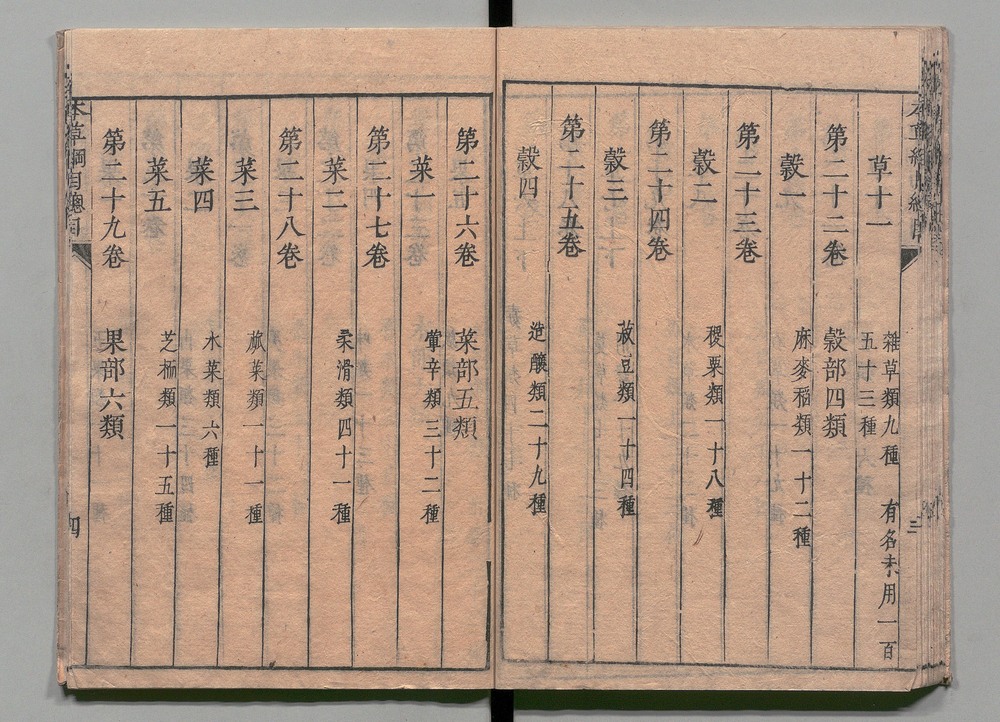 草十一
雜草類九種 有名未用一百
五十三種
第二十二卷 穀部四類
穀一
麻麥稻類一十二種
第二十三卷
穀二
稷粟類一十八種
第二十四卷
穀三
菽豆類一十四種
第二十五卷
穀四
造釀類二十九種
第二十六卷 菜部五類
菜一
葷辛類三十二種
第二十七卷
菜二
柔滑類四十一種
第二十八卷
菜三
蓏菜類一十一種
菜四
水菜類六種
菜五
芝栭類一十五種
第二十九卷 果部六類
本草綱目總目
四